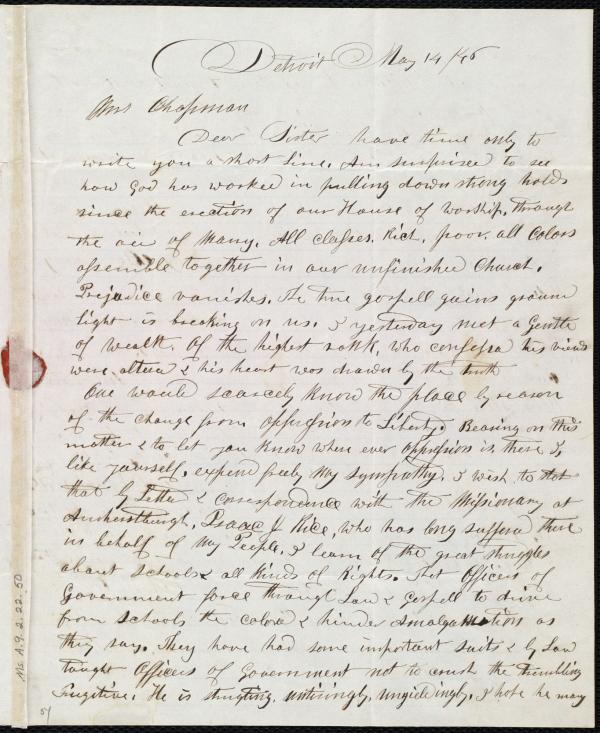 Detroit May 14 /46
Mrs Chapman
Dear Sister have time only to
write you a short Line. Am surprised to see
how God has worked in pulling down strong holds
since the erection of our House of worship, through
the aid of Many. All classes. Rich, poor, all Colors
assemble together in our unfinished Church.
Prejudice vanishes. The true gospell gains ground
light is breaking on us. I yesterday met a Gentle
of wealth. Of the highest rank, who confessed his views
were altered & his heart was drawn by the truth
One would scarcely know the place by reason
of the change from oppression to Liberty. Bearing on this
matter & to let you know where ever oppression is there I,
like yourself, expend freely my sympathy. I wish to
that by Letter & correspondence with the Missionary at
Amherstburgh, Isaac J Rice, who has long suffered there
in behalf of my People, I learn of the great struggles
about schools & all kinds of Rights. That Officers of
Government force through Law & Gospell to drive
from schools the colored & hinder Amalgamation as
they say. They have had some important suits & by Law
taught Officers of Government not to crush the trembling
Fugitive. He is strugling, untiringly, unyieldingly. I hope he may
Ms. A.9.2.22.50
51